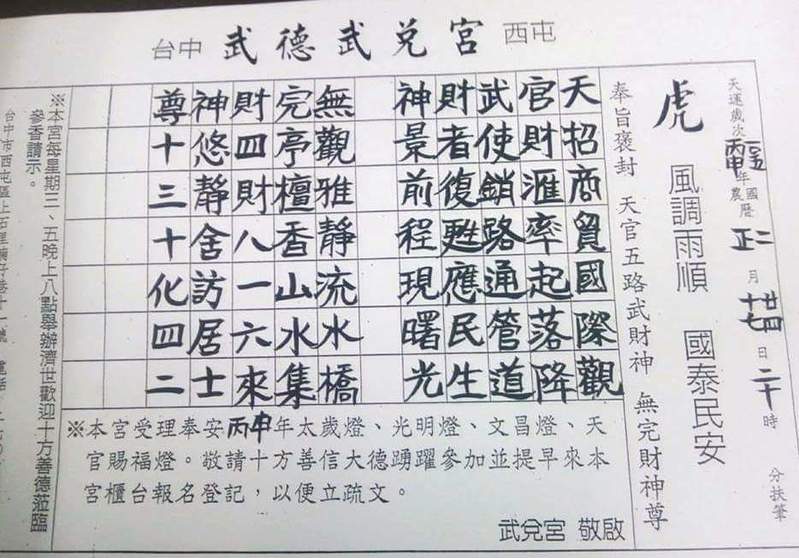 台中 武德武兌宮 西屯
天運歲次丙申年國農曆二正月廿四十七日二十時 分扶筆
虎 風調雨順 國泰民安
奉旨褒封 天官五路武財神 無完財神尊
天招商貿國際觀
官財滙率起落降
武使銷路通管道
財者復甦應民生
神景前程現曙光
無觀雅靜流水橋
完亭檀香山水集
財四財八一六來
神悠靜舍訪居士
尊十三十化四二
※本宮受理奉安丙申年太歲燈、光明燈、文昌燈、天
官賜福燈。敬請十方善信大德踴躍參加並提早來本
宮櫃台報名登記，以便立疏文。
武兌宮 敬啟
※本宮每星期三、五晚上八點舉辦濟世歡迎十方善德蒞臨
參香請示。
台中市西屯區上石里 巷十一號 電話